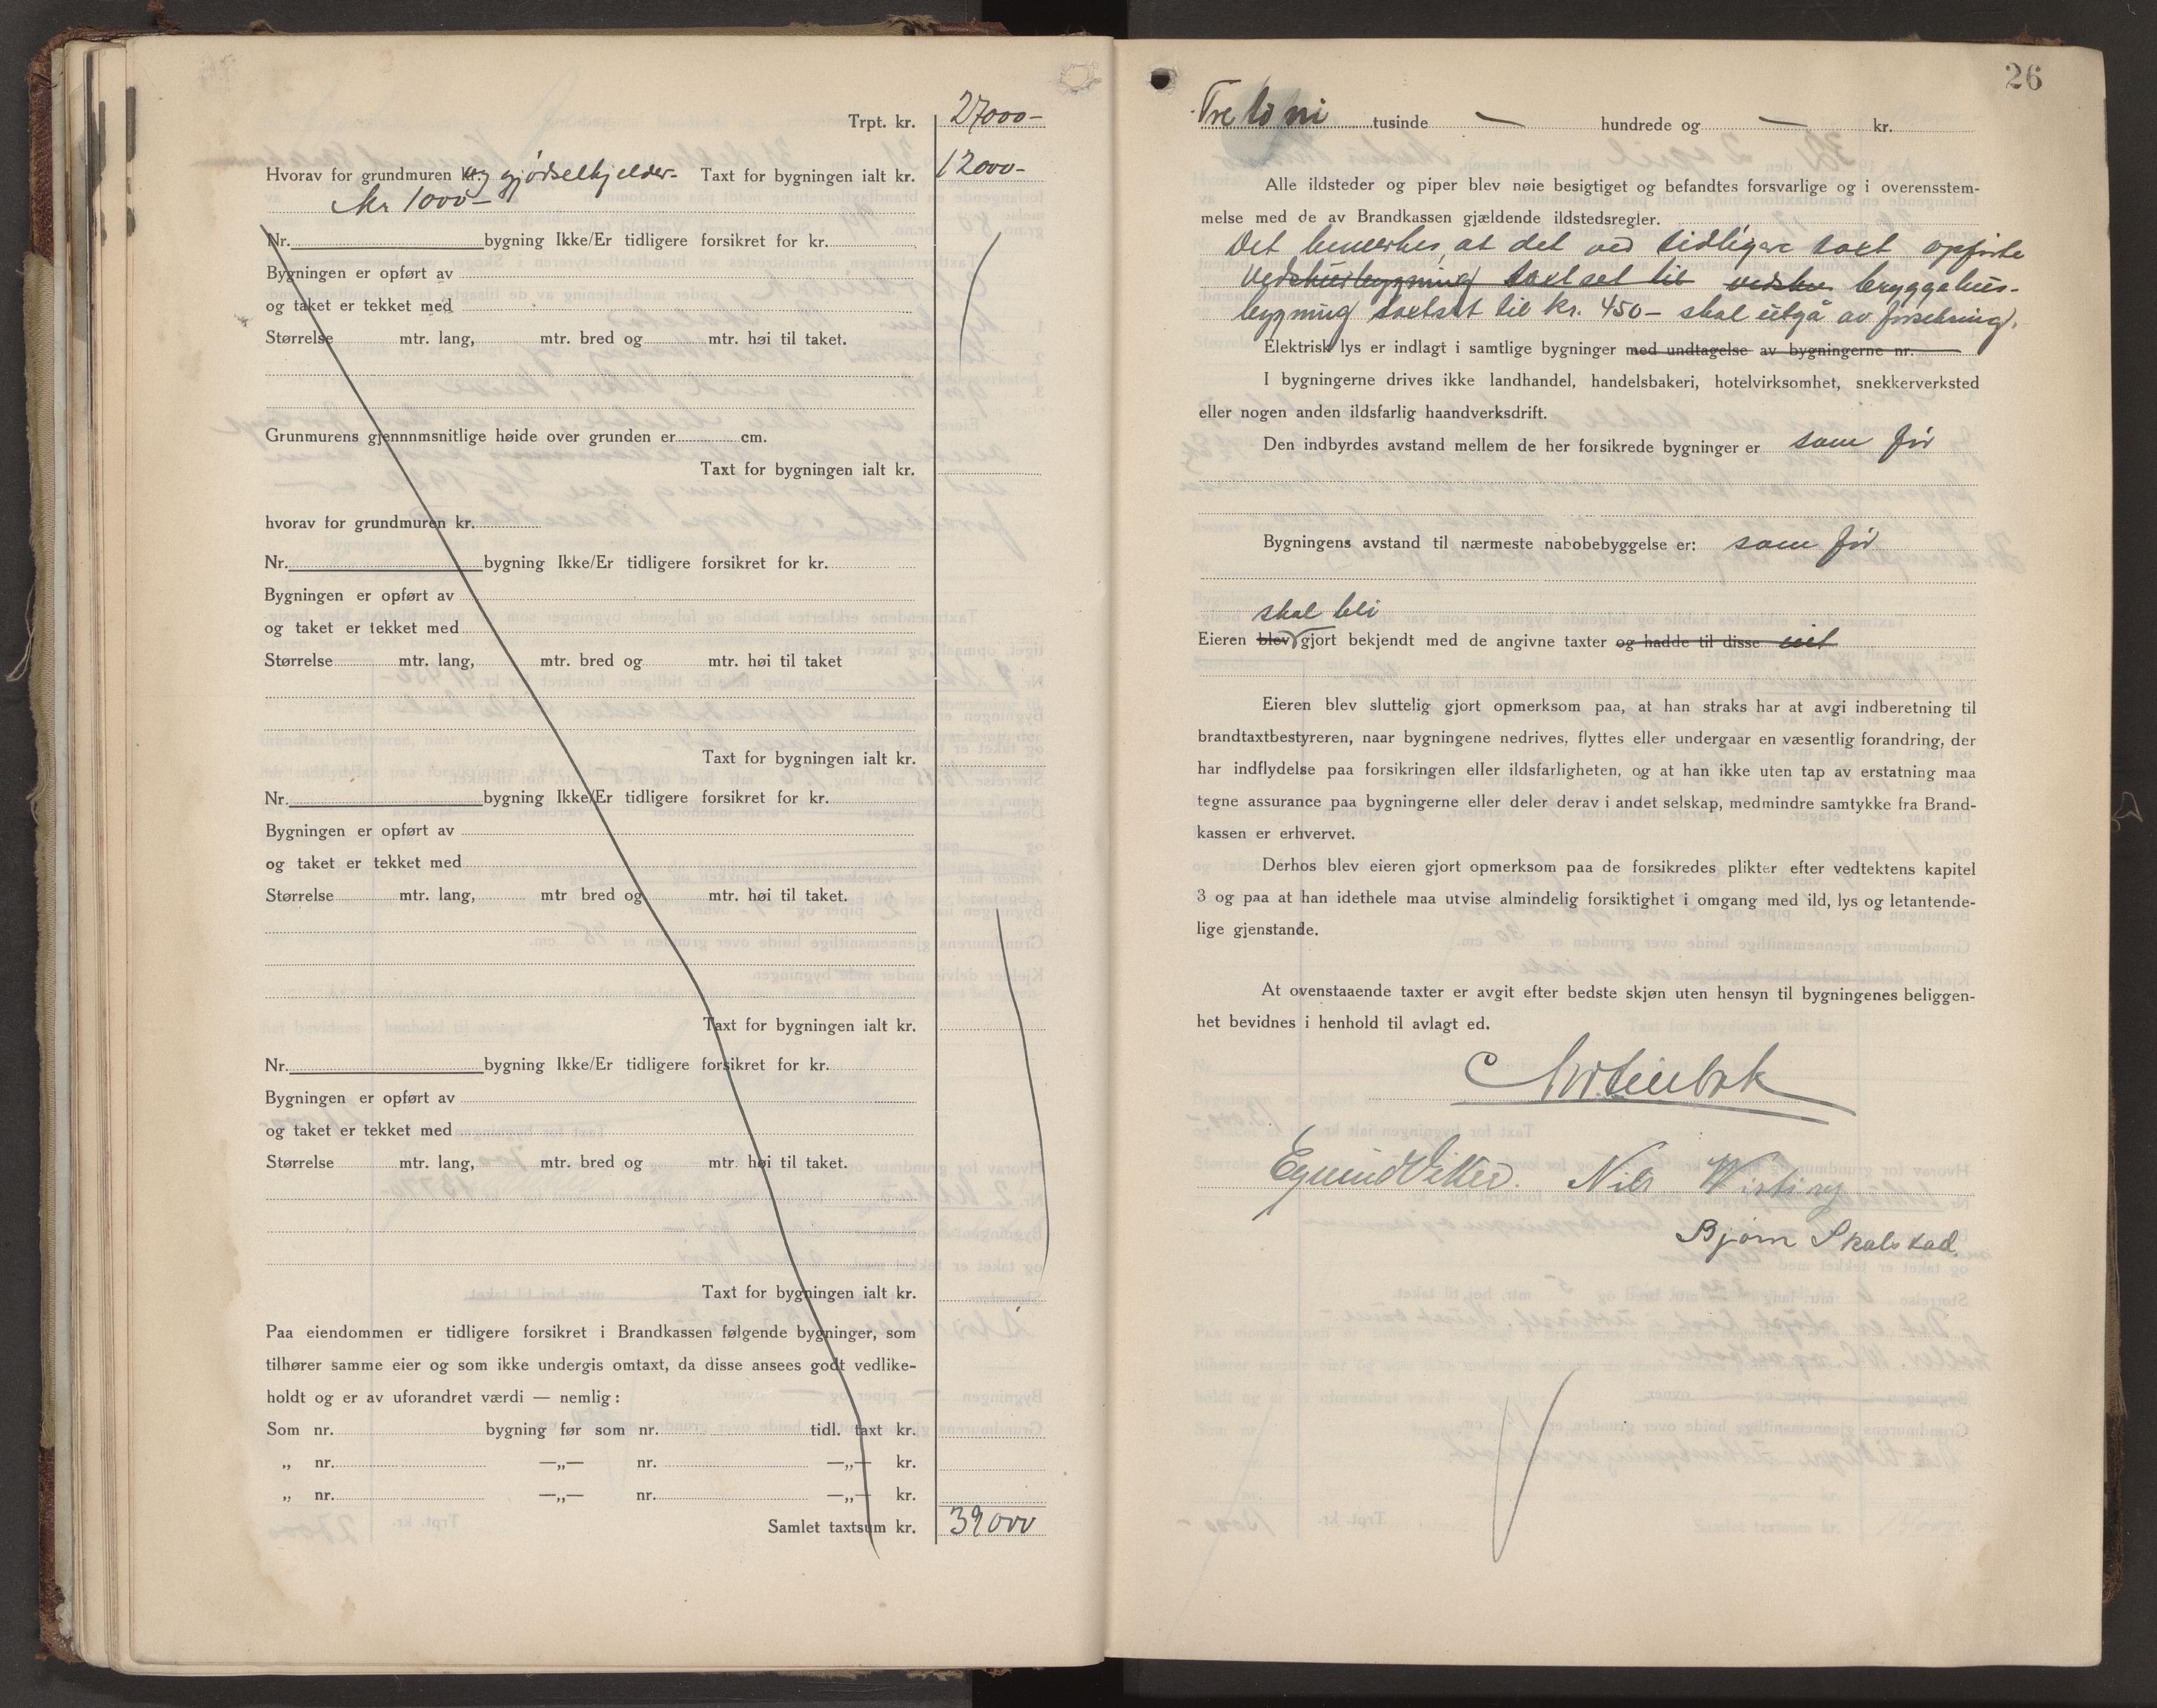 Trpt. kr. 27000-
Hvorav for grundmuren kr. og gjødselkjelder- Taxt for bygningen ialt kr. 12000-
Kr 1000-
Nr. bygning Ikke/Er tidligere forsikret for kr.
Bygningen er opført av
og taket er tekket med
Størrelse mtr. lang, mtr. bred og mtr. høi til taket.
Grunmurens gjennnmsnitlige høide over grunden er cm.
Taxt for bygningen ialt kr.
hvorav for grundmuren kr.
Nr. bygning Ikke/Er tidligere forsikret for kr.
Bygningen er opført av
og taket er tekket med
Størrelse mtr. lang, mtr. bred og mtr. høi til taket
Taxt for bygningen ialt kr.
Nr. bygning Ikke/Er tidligere forsikret for kr.
Bygningen er opført av
og taket er tekket med
Størrelse mtr. lang, mtr bred og mtr. høi til taket.
Taxt for bygningen ialt kr.
Nr. bygning Ikke/Er tidligere forsikret for kr.
Bygningen er opført av
og taket er tekket med
Størrelse mtr. lang, mtr. bred og mtr. høi til taket.
Taxt for bygningen ialt kr.
Paa eiendommen er tidligere forsikret i Brandkassen følgende bygninger, som
tilhører samme eier og som ikke undergis omtaxt, da disse ansees godt vedlike-
holdt og er av uforandret værdi — nemlig:
Som nr. bygning før som nr. tidl. taxt kr.
„ nr. —„— nr. —„— kr.
„ nr. —„— nr. —„— kr.
Samlet taxtsum kr. 39000
26
Tre ti ni tusinde — hundrede og — kr.
Alle ildsteder og piper blev nøie besigtiget og befandtes forsvarlige og i overensstem-
melse med de av Brandkassen gjældende ildstedsregler.
Det bemerkes, at det ved tidligere taxt opførte
vedskurbygning taxtset til vedsku bryggehus-
bygning taxtsat til kr. 450- skal utgå av forsikring.
Elektrisk lys er indlagt i samtlige bygninger med undtagelse av bygningerne nr.
I bygningerne drives ikke landhandel, handelsbakeri, hotelvirksomhet, snekkerverksted
eller nogen anden ildsfarlig haandverksdrift.
Den indbyrdes avstand mellem de her forsikrede bygninger er som før
Bygningens avstand til nærmeste nabobebyggelse er: som før
skal bli
Eieren blev gjort bekjendt med de angivne taxter og hadde til disse intet
Eieren blev sluttelig gjort opmerksom paa, at han straks har at avgi indberetning til
brandtaxtbestyreren, naar bygningene nedrives, flyttes eller undergaar en væsentlig forandring, der
har indflydelse paa forsikringen eller ildsfarligheten, og at han ikke uten tap av erstatning maa
tegne assurance paa bygningerne eller deler derav i andet selskap, medmindre samtykke fra Brand-
kassen er erhvervet.
Derhos blev eieren gjort opmerksom paa de forsikredes plikter efter vedtektens kapitel
3 og paa at han idethele maa utvise almindelig forsiktighet i omgang med ild, lys og letantende-
lige gjenstande.
At ovenstaaende taxter er avgit efter bedste skjøn uten hensyn til bygningenes beliggen-
het bevidnes i henhold til avlagt ed.
Egmund Nils Wirting
Bjørn Skalstad.